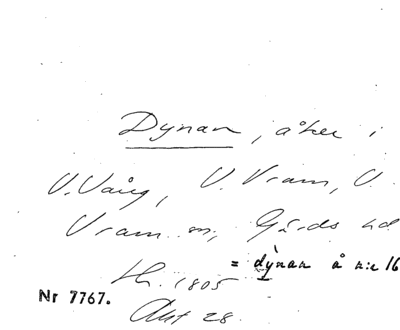 Dynan, åker i
V. Vång, V. Vram, V.
Vram sn, Gärds hd
= dỳnan å n:e 16
Hs. 1805
Nr 7767.
Akt 28.